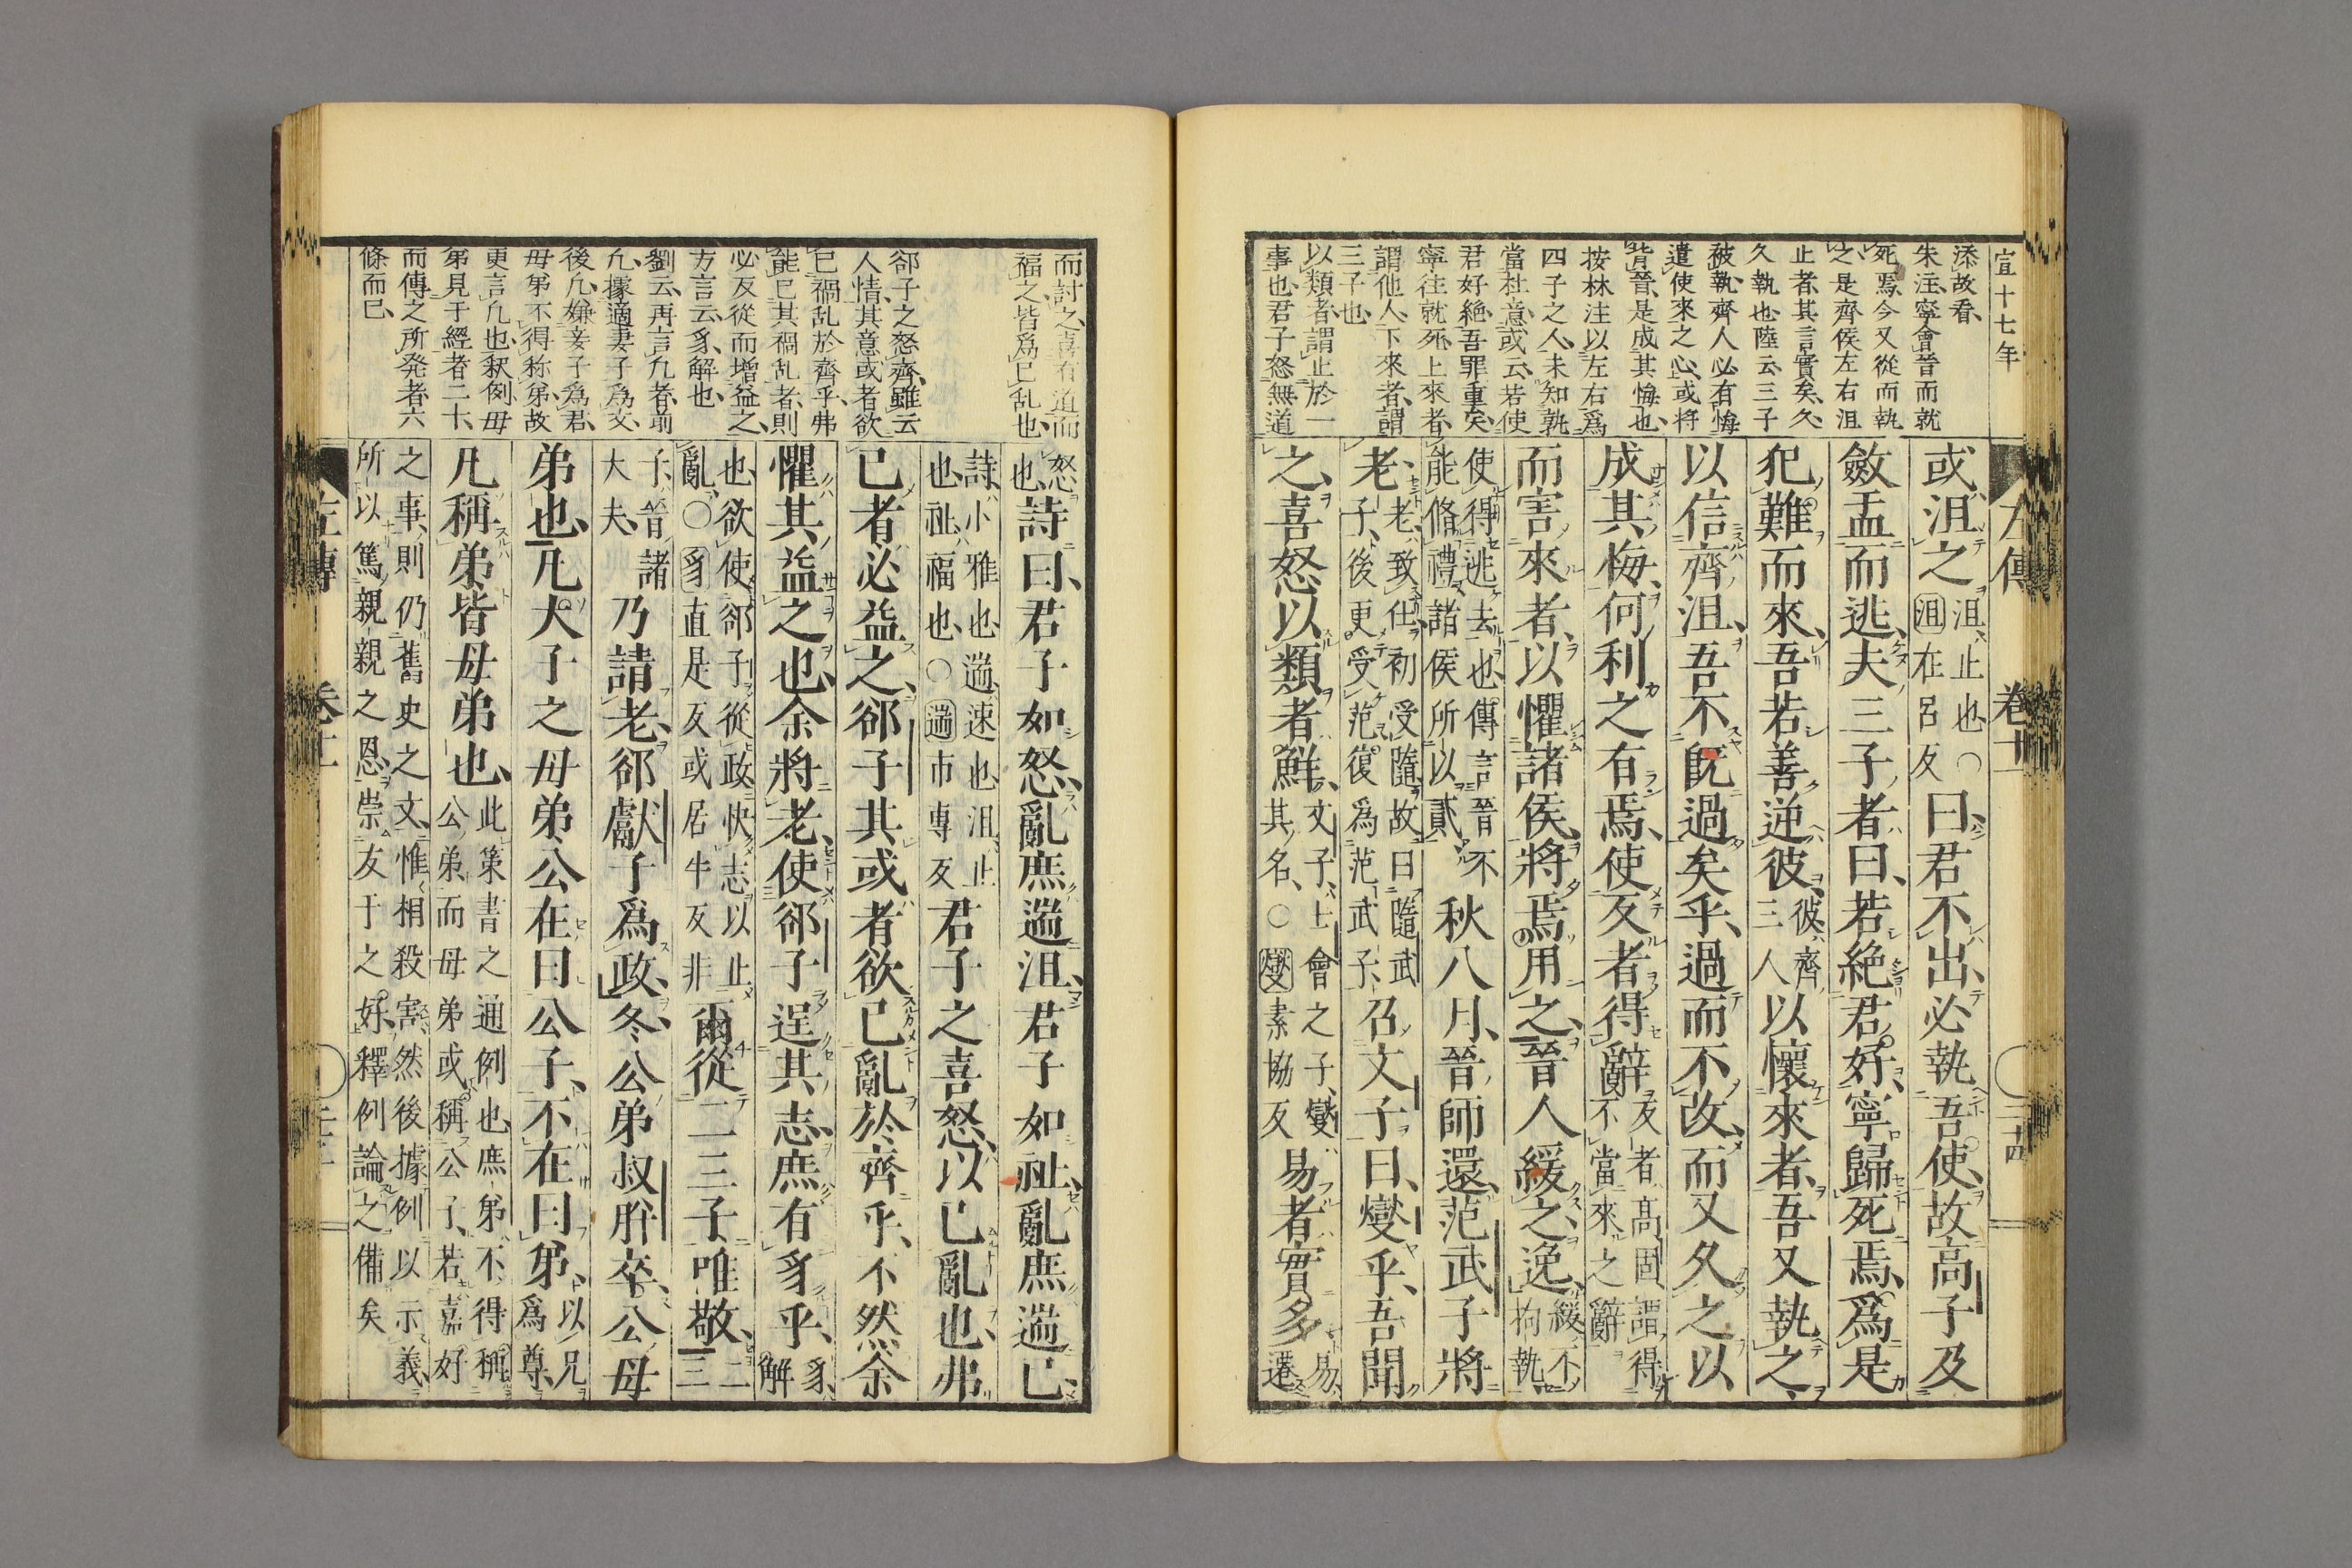 宣十七年
添故看、
朱注、寧會晉而就
死焉、今又從而執
之、是齊侯左右沮
止者、其言實矣、久
久執也、陸云、三子
被執、齊人必有悔
遣使來之心、或將
皆晉、是成其悔也、
按林注以左右爲
四子之人、未知孰
當杜意、或云、若使
君好絶、吾罪重矣、
寧往就死、上來者、
謂他人、下來者、謂
三子也、
以類者、謂止於一
事也、君子怒無道
左傳 卷十一 二十四
或沮之、沮、止也、○沮在呂反 曰、君不出、必執吾使、故高子及
斂盂而逃、夫三子者曰、若絶君好、寧歸死焉、爲是
犯難而來、吾若善逆彼、彼、齊三人 以懷來者、吾又執之、
以信齊沮、吾不旣過矣乎、過而不改、而又久之、以
成其悔、何利之有焉、使反者得辭、反者高固、謂得不當來之辭
而害來者、以懼諸侯、將焉用之、晉人緩之、逸、緩、不拘執、
使得逃去也、傳言晉不能脩禮、諸侯所以貳 秋八月、晉師還、范武子將
老、老、致仕、初受隨、故曰隨武子、後更受范、復爲范武子、 召文子曰、燮乎、吾聞
之、喜怒以類者鮮、文子、士會之子、燮其名、○燮素協反 易者實多、易、遷
而討之、喜有道而
福之、皆爲已乱也、
郤子之怒齊、雖云
人情、其意或者欲
已禍乱於齊乎、弗
能已其禍乱者、則
必反從而増益之、
方言云、豸、解也、
劉云、再言凡者、前
凡據適妻子爲文、
後凡嫌妾子爲君、
母弟不得称弟、故
更言凡也、釈例、母
弟見于經者二十、
而傳之所発者六
條而已、
怒也、 詩曰、君子如怒、亂庶遄沮、君子如祉、亂庶遄已、
詩、小雅也、遄、速也、沮、止也、祉、福也、○遄市專反 君子之喜怒、以已亂也、弗
已者、必益之、郤子其或者欲已亂於齊乎、不然、余
懼其益之也、余將老、使郤子逞其志、庶有豸乎、豸、解
也、欲使郤子從政、快志以止亂、○豸直是反或居牛反非 爾從二三子、唯敬、二三
子、晉諸大夫、 乃請老、郤獻子爲政、冬、公弟叔肸卒、公母
弟也、凡大子之母弟、公在曰公子、不在曰弟、以兄爲尊、
凡稱弟、皆母弟也、此策書之通例也、庶弟不得稱公弟、而母弟或稱公子、若嘉好
之事、則仍舊史之文、惟相殺害、然後據例以示義、所以篤親親之恩、崇友于之好、釋例論之備矣
左傳 卷十一